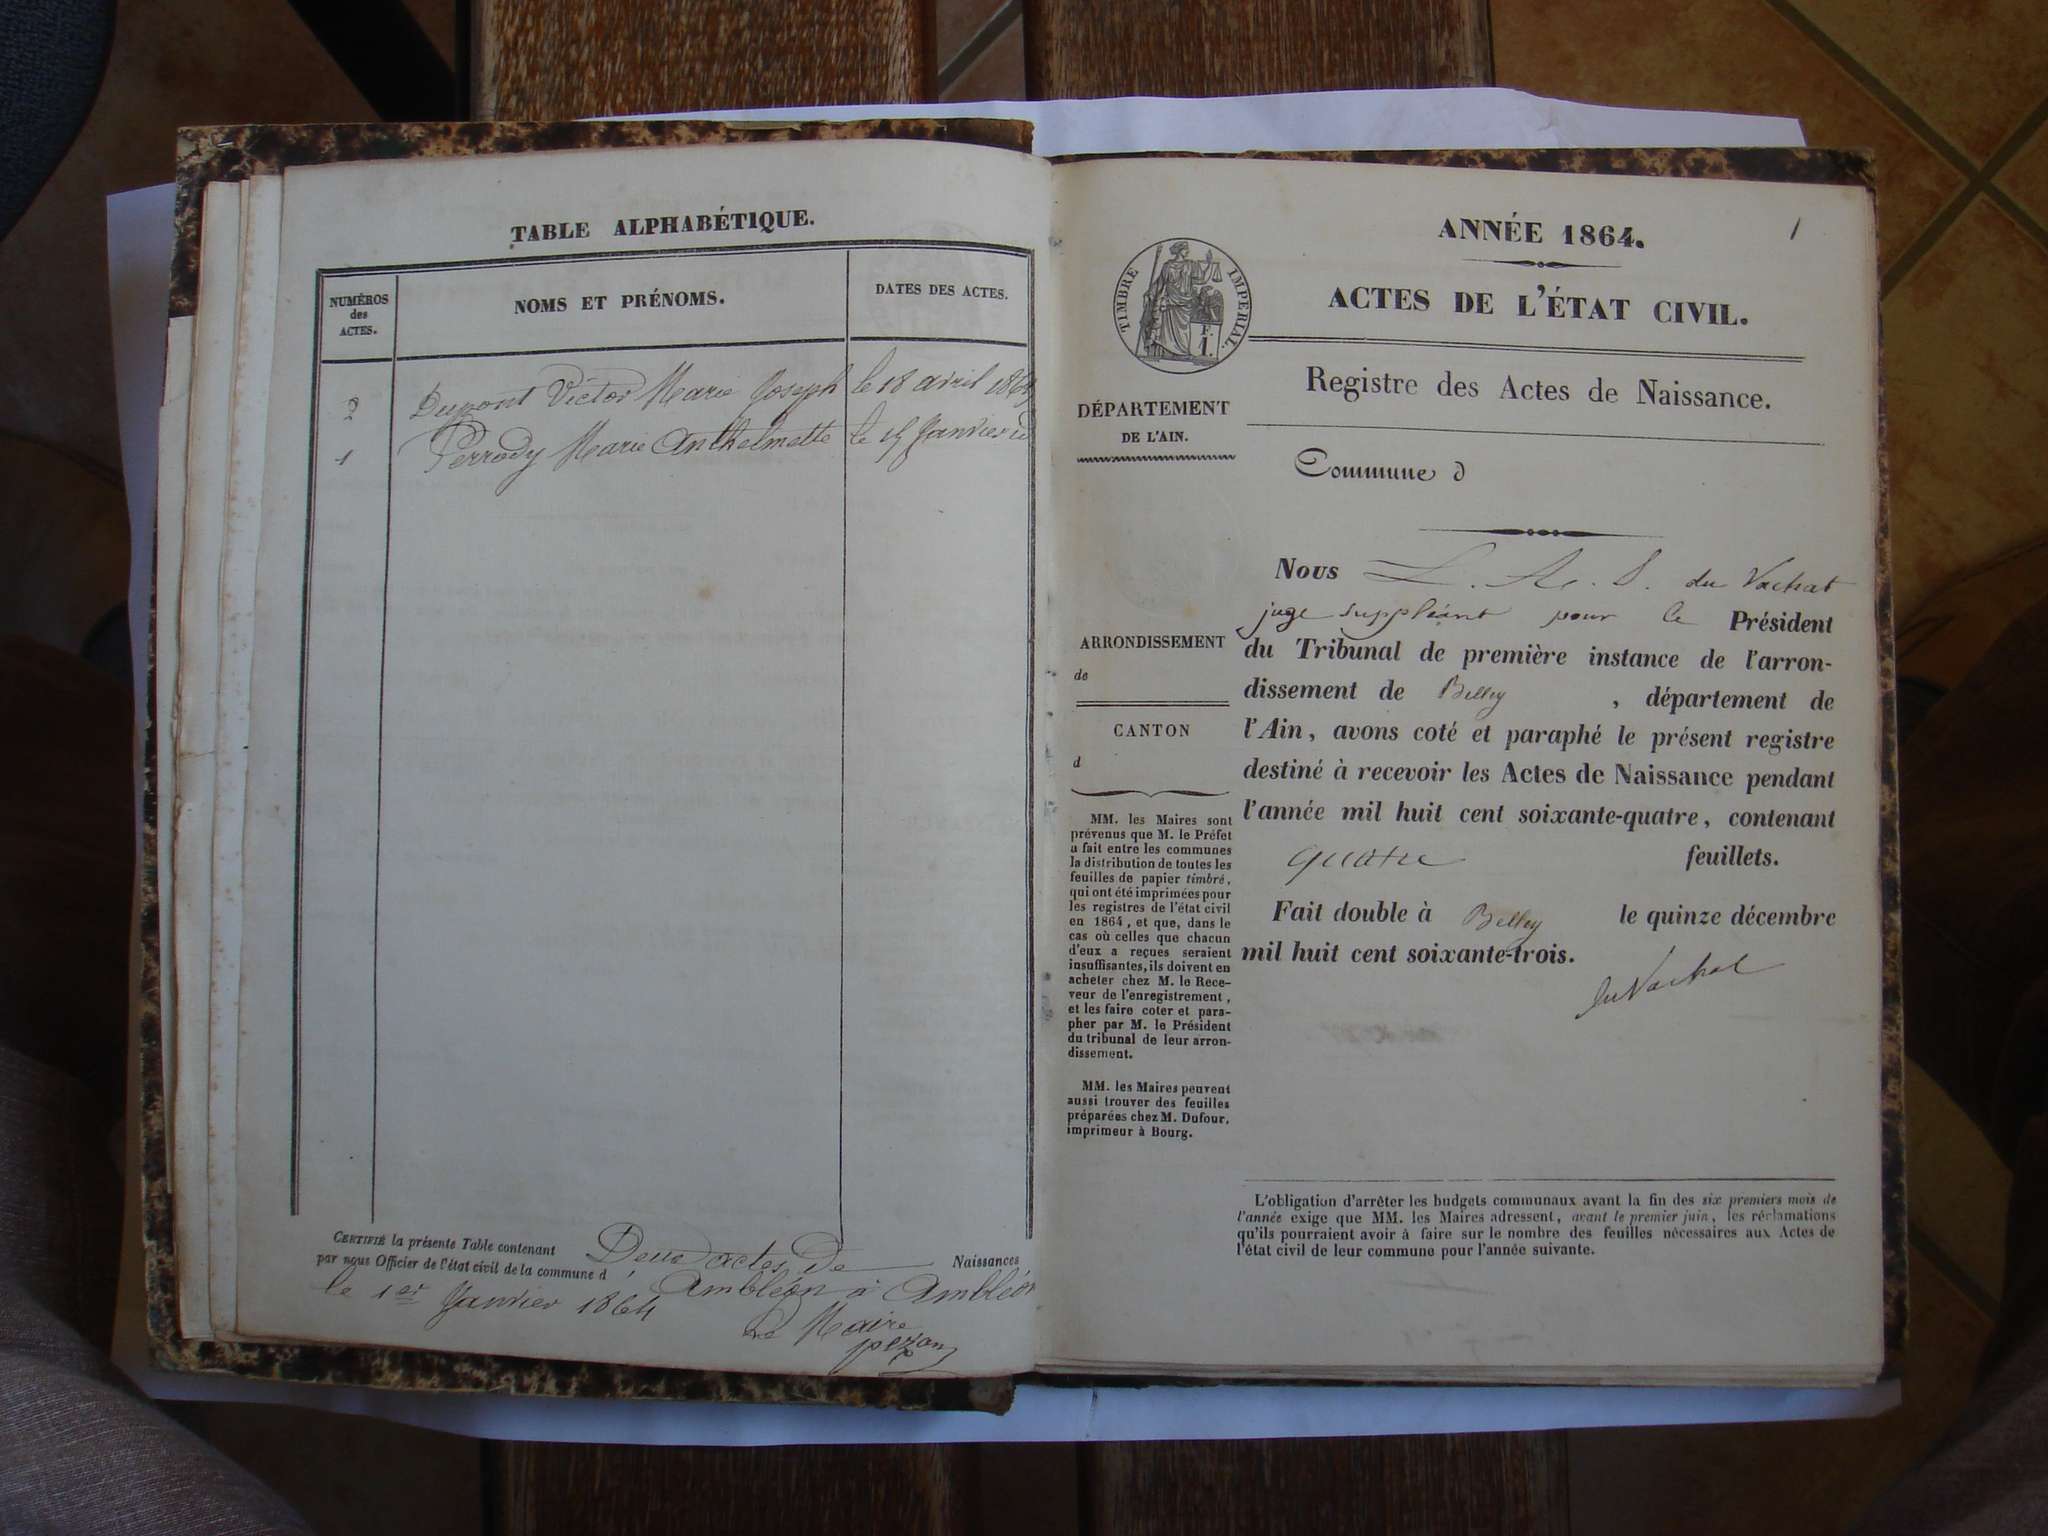 TABLE ALPHABÉTIQUE.
NUMÉROS
des
ACTES.
NOMS ET PRÉNOMS.
DATES DES ACTES.
2 Dupont Victor Marie Joseph le 18 avril
1 Perrody Marie Anthelmette le 15 Janvier id
CERTIFIÉ la présente Table contenant Deux actes De Naissances
par nous Officier de l'état civil de la commune d' Ambléon à Ambléon
le 1er Janvier 1864
Le Maire
pezan
ANNÉE 1864.
1
ACTES DE L'ÉTAT CIVIL.
TIMBRE IMPERIAL.
Registre des Actes de Naissance.
DÉPARTEMENT
DE L'AIN.
Commune d
Nous L. A. S. du Vachat
juge suppléant pour le Président
du Tribunal de première instance de l'arron-
dissement de Belley , département de
l'Ain, avons coté et paraphé le présent registre
destiné à recevoir les Actes de Naissance pendant
l'année mil huit cent soixante-quatre, contenant
quatre feuillets.
Fait double à Belley le quinze décembre
mil huit cent soixante-trois.
du Vachat
ARRONDISSEMENT
de
CANTON
d
MM. les Maires sont
prévenus que M. le Préfet
a fait entre les communes
la distribution de toutes les
feuilles de papier timbré,
qui ont été imprimées pour
les registres de l'état civil
en 1864, et que, dans le
cas où celles que chacun
d'eux a reçues seraient
insuffisantes, ils doivent en
acheter chez M. le Rece-
veur de l'enregistrement,
et les faire coter et para-
pher par M. le Président
du tribunal de leur arron-
dissement.
MM. les Maires peuvent
aussi trouver des feuilles
préparées chez M. Dufour,
imprimeur à Bourg.
L'obligation d'arrêter les budgets communaux avant la fin des six premiers mois de
l'année exige que MM. les Maires adressent, avant le premier juin, les réclamations
qu'ils pourraient avoir à faire sur le nombre des feuilles nécessaires aux Actes de
l'état civil de leur commune pour l'année suivante.